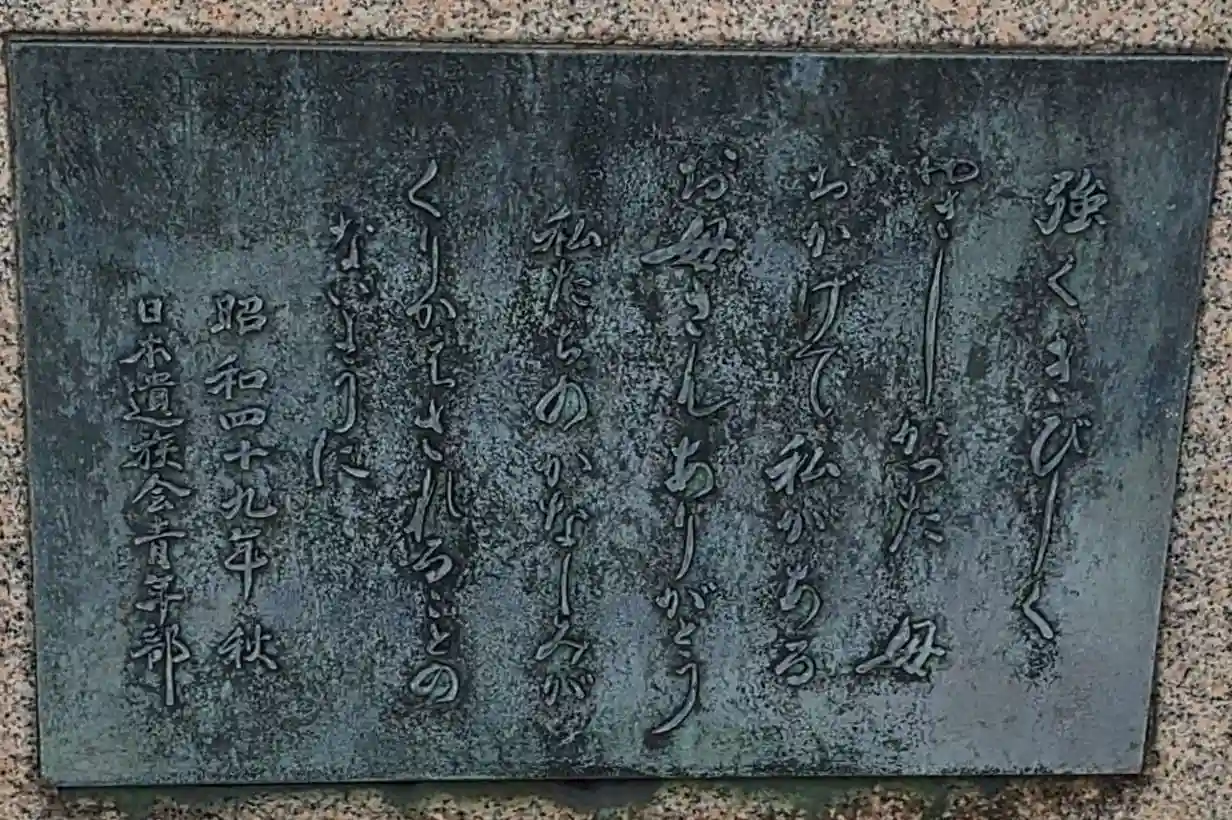 強くきびしく
やさしかった 母
おかげで私がある
お母さんありがとう
私たちのかなしみが
くりかえされることの
ないように
昭和四十九年秋
日本遺族会青年部